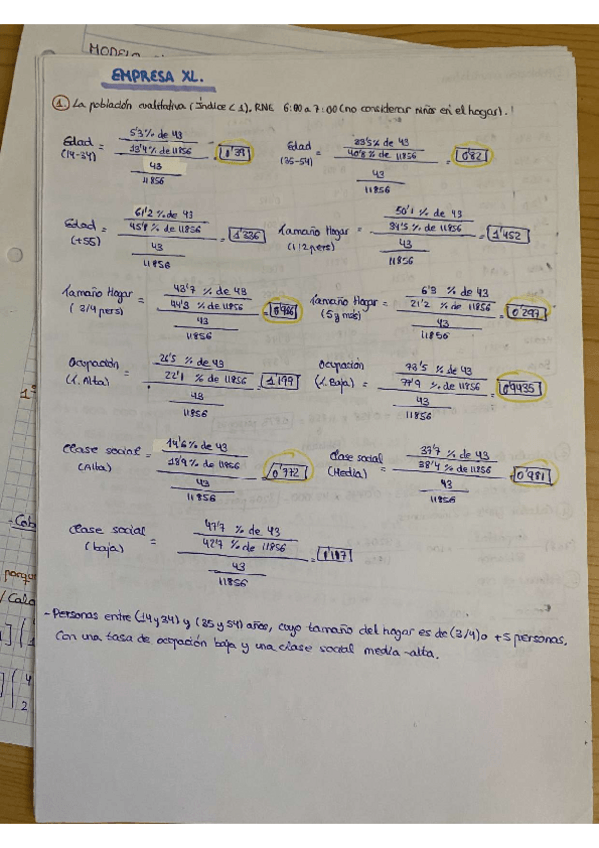 MODELO
EMPRESA XL.
① La población cualitativa (Índice < 1). RNE 6:00 a 7:00 (no considerar niños en el hogar).!
Edad (14-34) = 5'3% de 43 / 13'4% de 11856 / 43 / 11856 = 0'39
Edad (35-54) = 33'5% de 43 / 40'8% de 11856 / 43 / 11856 = 0'82
Edad (+55) = 61'2% de 43 / 45'8% de 11856 / 43 / 11856 = 1'336
Tamaño Hogar (1/2 pers) = 50'1% de 43 / 34'5% de 11856 / 43 / 11856 = 1'452
Tamaño Hogar (3/4 pers) = 43'7% de 43 / 44'3% de 11856 / 43 / 11856 = 0'986
Tamaño Hogar (5 y más) = 6'3% de 43 / 21'2% de 11856 / 43 / 11856 = 0'297
Ocupación (l. Alta) = 26'5% de 43 / 22'1% de 11856 / 43 / 11856 = 1'199
Ocupación (l. Baja) = 73'5% de 43 / 77'9% de 11856 / 43 / 11856 = 0'9435
Clase social (Alta) = 14'6% de 43 / 18'9% de 11856 / 43 / 11856 = 0'772
Clase social (Media) = 37'7% de 43 / 38'4% de 11856 / 43 / 11856 = 0'981
Clase social (baja) = 47'7% de 43 / 42'7% de 11856 / 43 / 11856 = 1'117
- Personas entre (14 y 34) y (35 y 54) años, cuyo tamaño del hogar es de (3/4) o +5 personas.
Con una tasa de ocupación baja y una clase social media-alta.